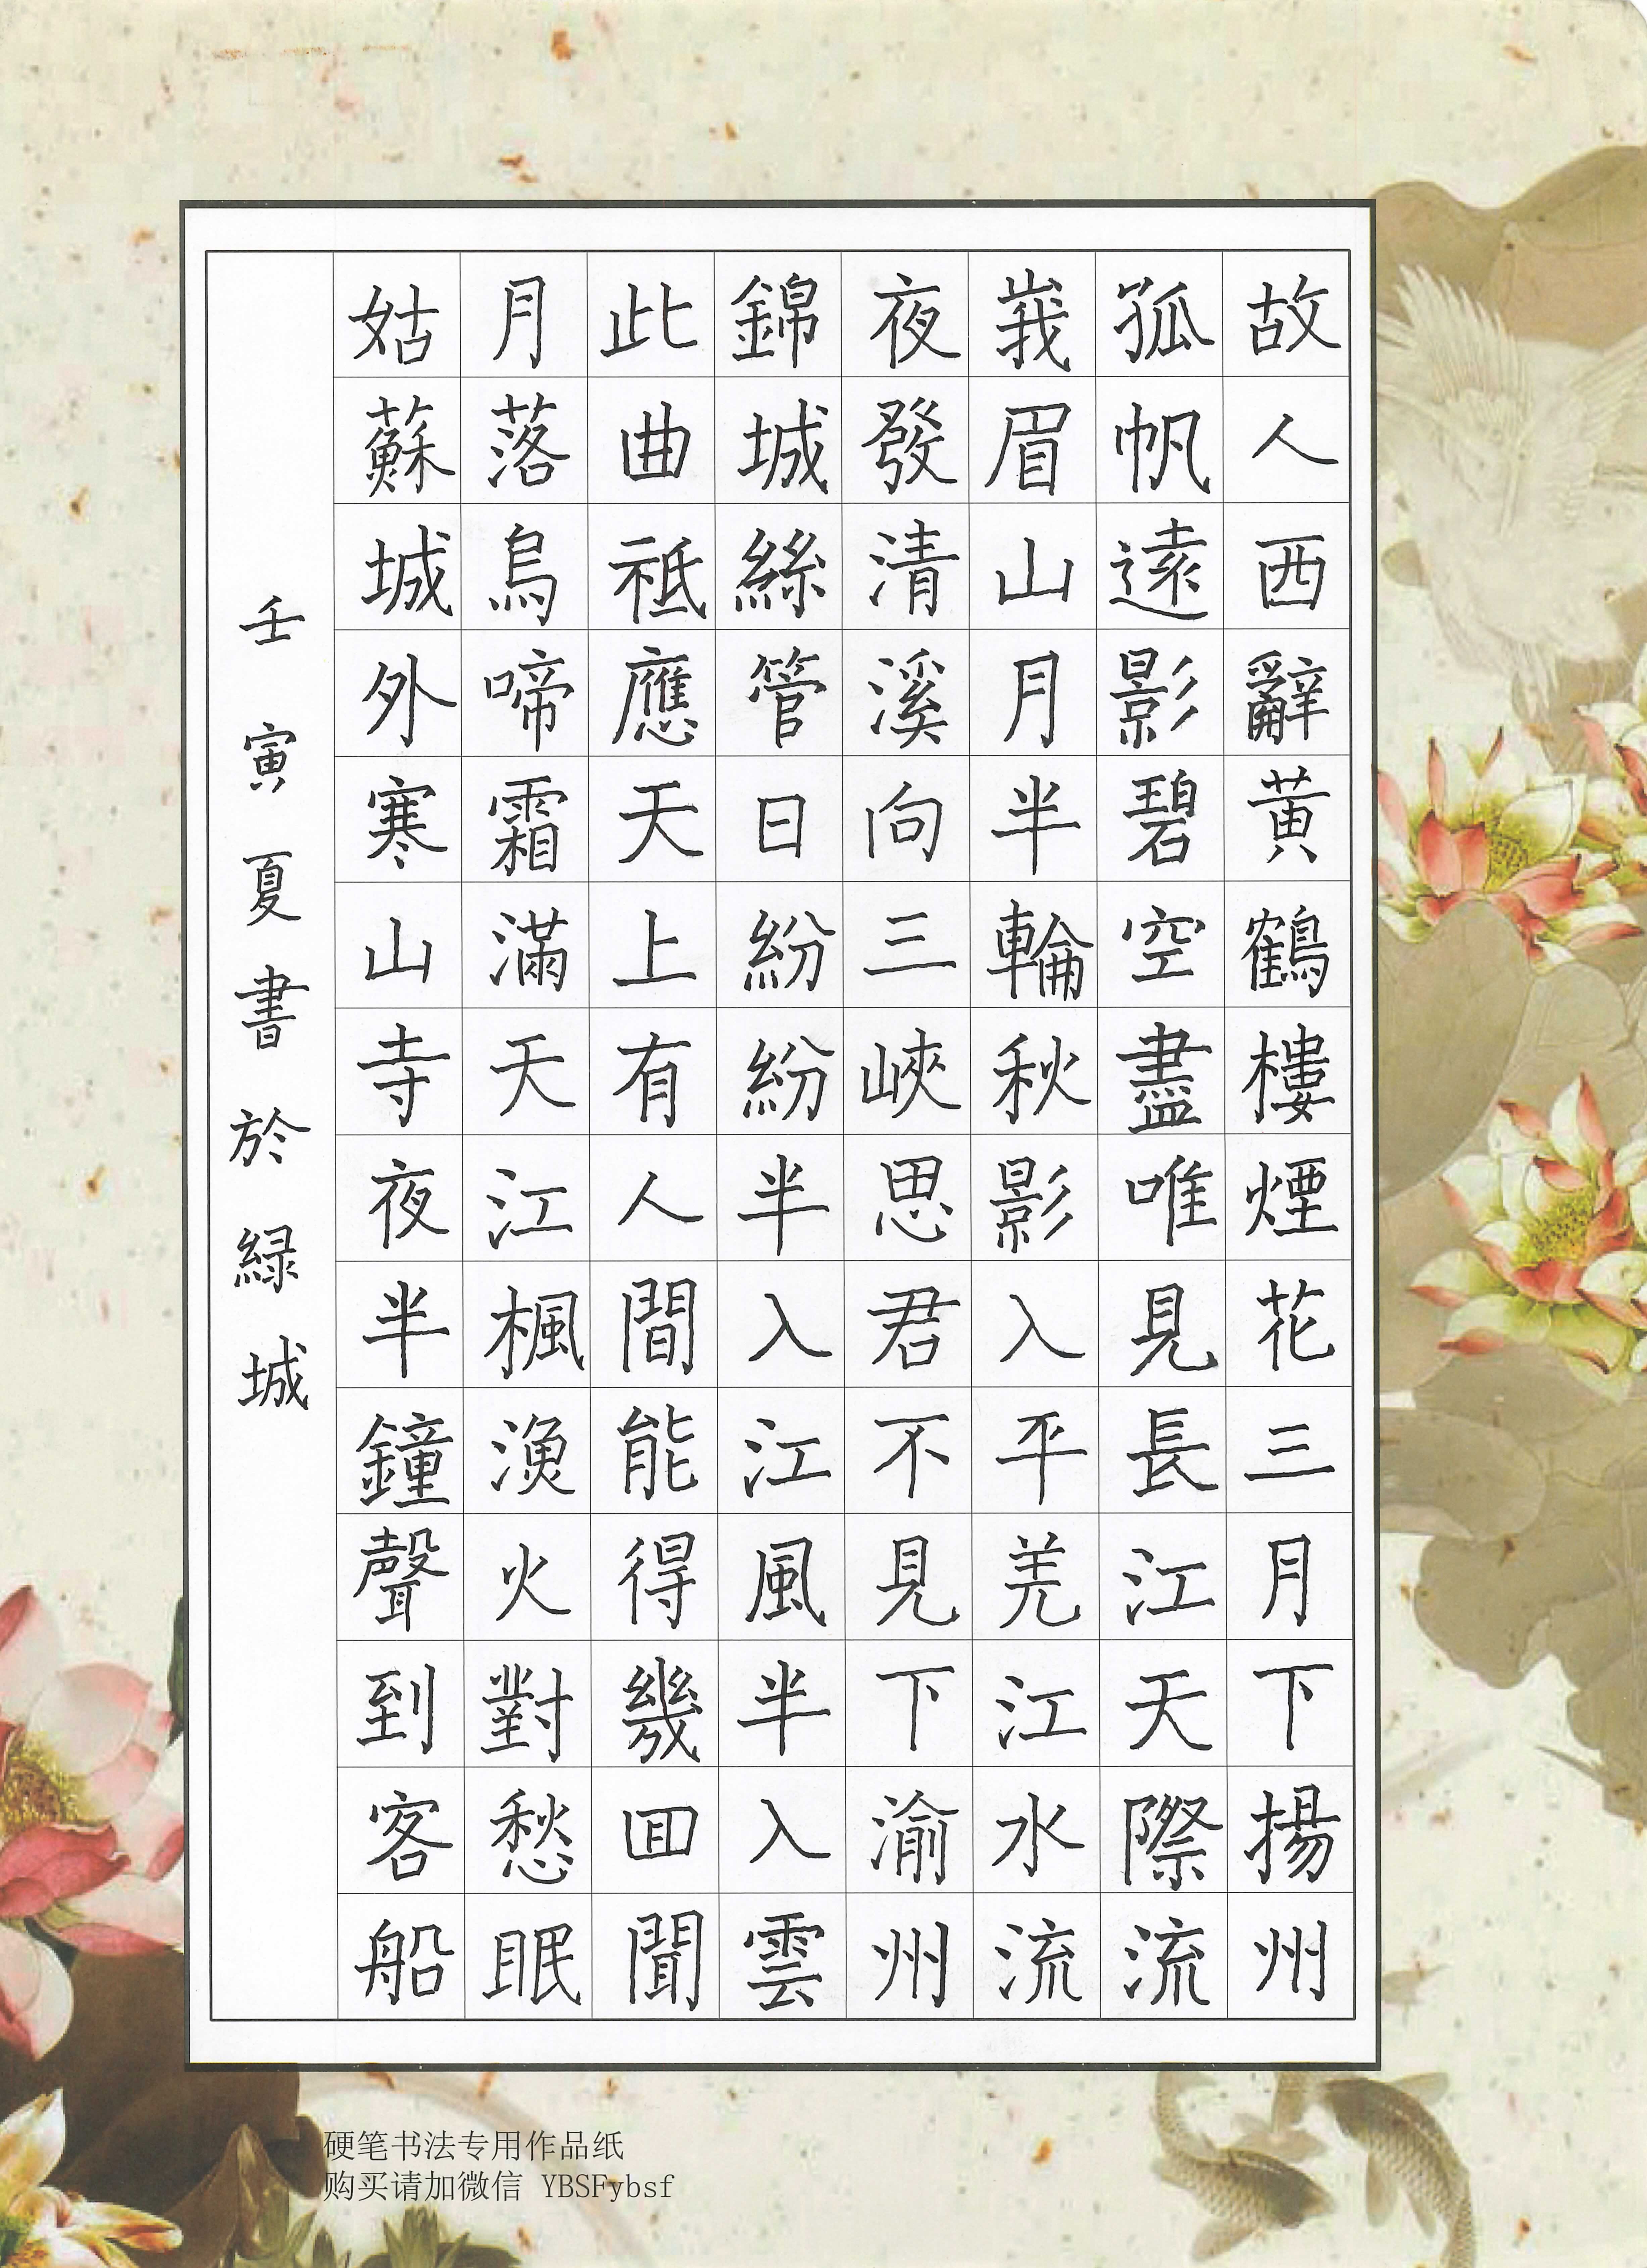 故人西辭黃鶴樓煙花三月下揚州
孤帆遠影碧空盡唯見長江天際流
峩眉山月半輪秋影入平羌江水流
夜發清溪向三峽思君不見下渝州
錦城絲管日紛紛半入江風半入雲
此曲祗應天上有人間能得幾回聞
月落烏啼霜滿天江楓漁火對愁眠
姑蘇城外寒山寺夜半鐘聲到客船
壬寅夏書於綠城
硬笔书法专用作品纸
购买请加微信 YBSFybsf